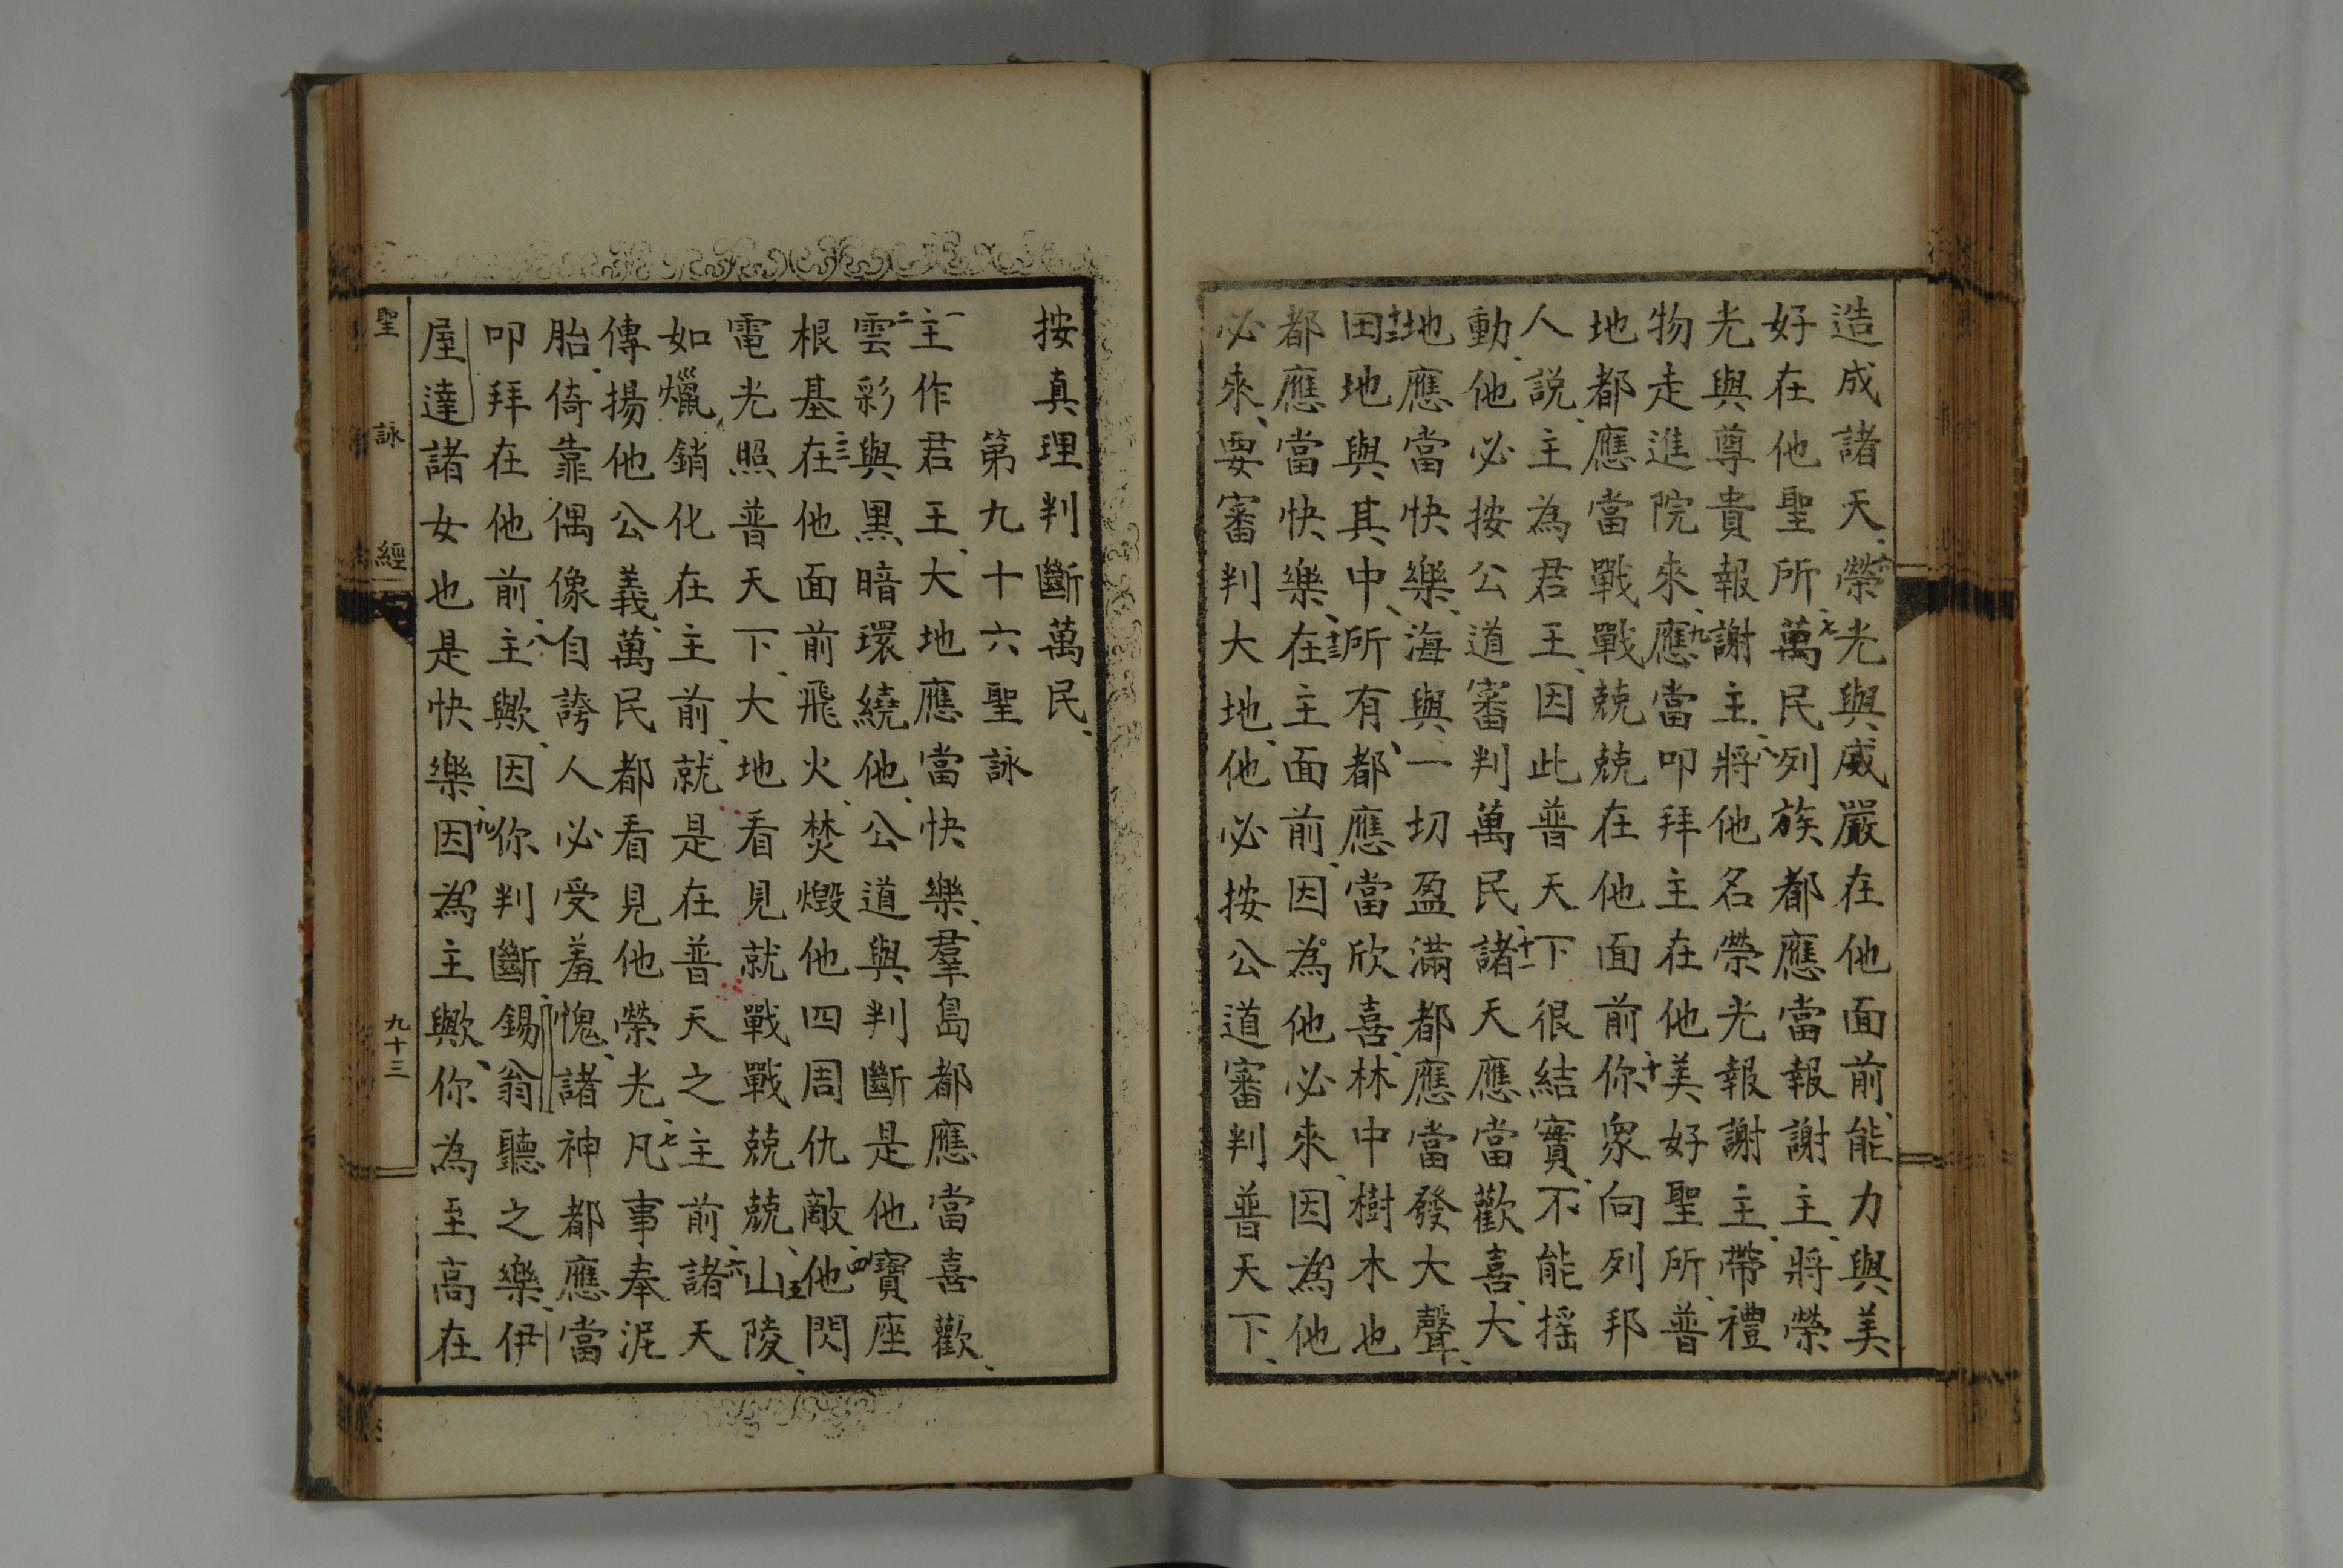 造成諸天、六榮光與威嚴在他面前、能力與美
好在他聖所、七萬民列族都應當報謝主、將榮
光與尊貴報謝主、八將他名榮光報謝主、帶禮
物走進院來、九應當叩拜主在他美好聖所、普
地都應當戰戰兢兢在他面前、十你衆向列邦
人說、主為君王、因此普天下很結實、不能搖
動、他必按公道審判萬民、十一諸天應當歡喜、大
地應當快樂、海與一切盈滿都應當發大聲、
十二田地與其中、所有、都應當欣喜、林中樹木也
都應當快樂、十三在主面前、因為他必來、因為他
必來、要審判大地、他必按公道審判普天下、
按真理判斷萬民、
第九十六聖詠
一主作君王、大地應當快樂、羣島都應當喜歡、
二雲彩與黑暗環繞他、公道與判斷是他寶座
根基、三在他面前飛火、焚燬他四周仇敵、四他閃
電光照普天下、大地看見就戰戰兢兢、五山陵、
如爉銷化在主前、就是在普天之主前、六諸天
傳揚他公義、萬民都看見他榮光、七凡事奉泥
胎、倚靠偶像自誇人必受羞愧、諸神都應當
叩拜在他前、八主歟、因你判斷、錫翁聽之樂、伊
屋達諸女也是快樂、九因為主歟、你為至高在
聖詠經
九十三